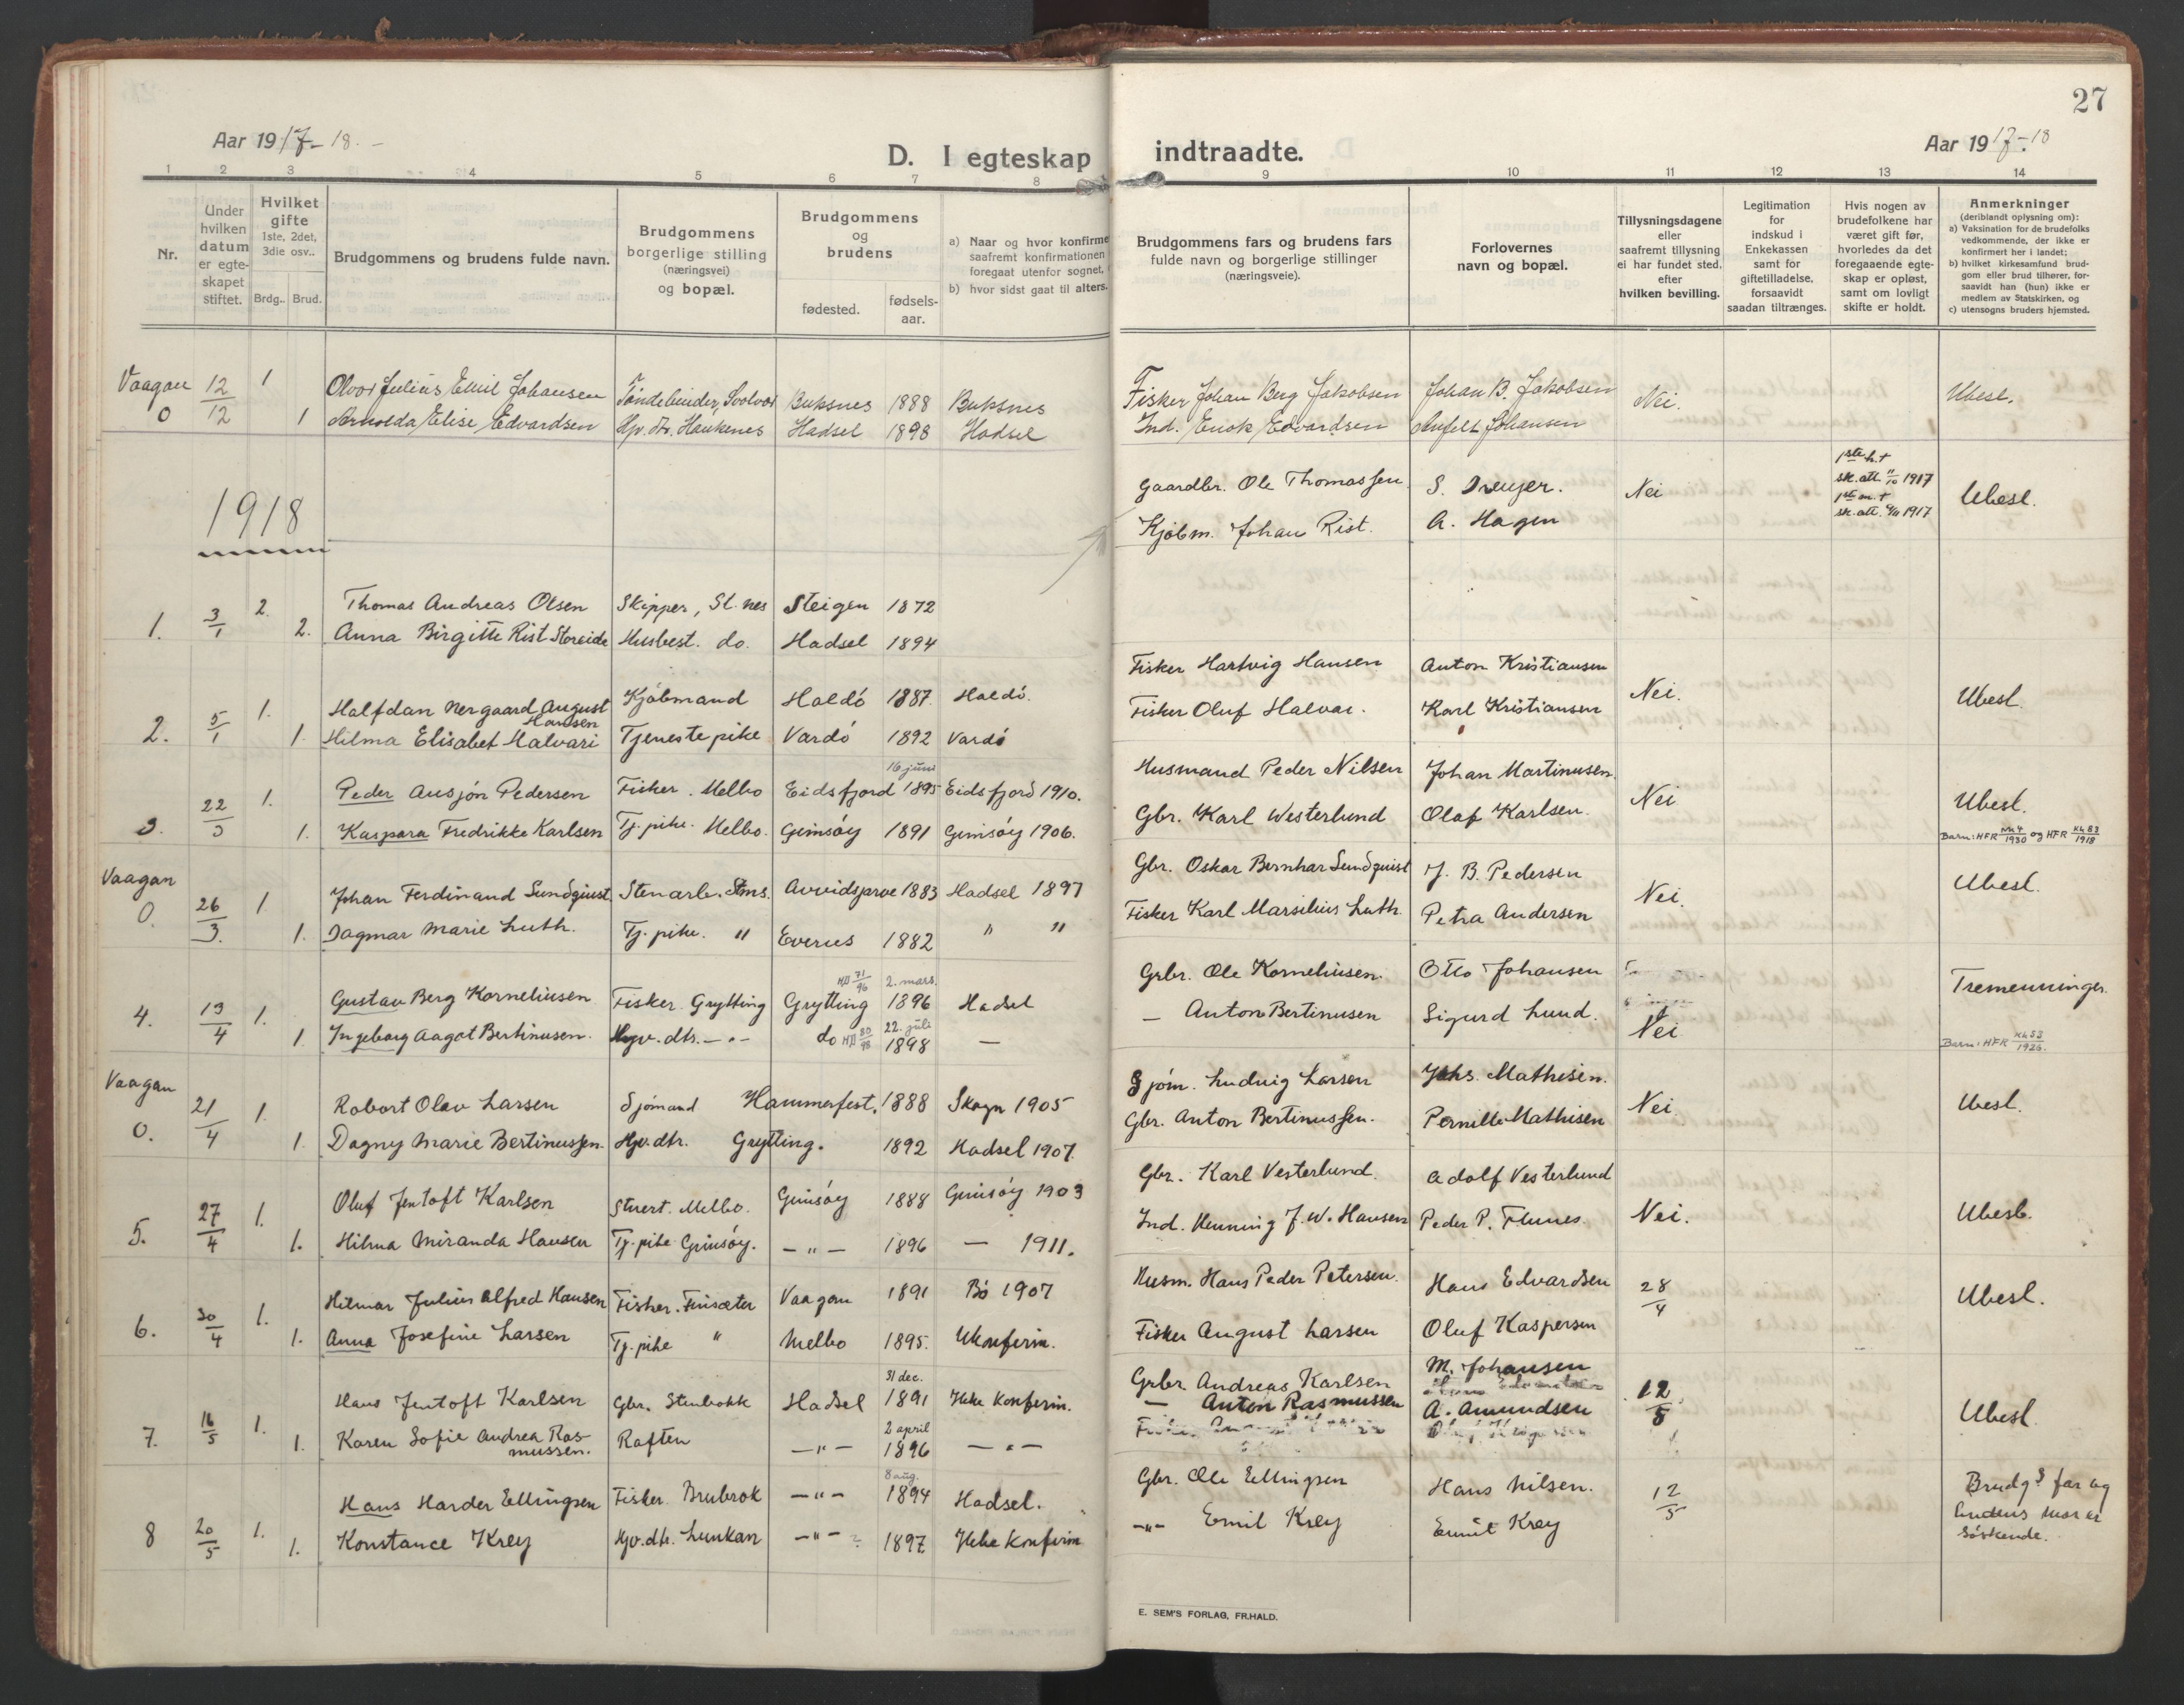 27
Aar 1917-18.-
D. I egteskap indtraadte.
Aar 1917-18
1 2 3 4 5 6 7 8 9 10 11 12 13 14
Nr.
Under hvilken datum er egte-skapet stiftet.
Hvilket gifte 1ste, 2det, 3die osv..
Brdg.. Brud.
Brudgommens og brudens fulde navn.
Brudgommens borgerlige stilling (næringsvei) og bopæl.
Brudgommens og brudens
fødested. fødsels-aar.
a) Naar og hvor konfirme
saafremt konfirmationen
foregaat utenfor sognet,
b) hvor sidst gaat til alters.
Brudgommens fars og brudens fars
fulde navn og borgerlige stillinger
(næringsveie).
Forlovernes
navn og bopæl.
Tillysningsdagene
eller
saafremt tillysning
ei har fundet sted,
efter
hvilken bevilling.
Legitimation
for
indskud i
Enkekassen
samt for
giftetilladelse,
forsaavidt
saadan tiltrænges.
Hvis nogen av
brudefolkene har
været gift før,
hvorledes da det
foregaaende egte-
skap er opløst,
samt om lovligt
skifte er holdt.
Anmerkninger
(deriblandt oplysning om):
a) Vaksination for de brudefolks
vedkommende, der ikke er
konfirmert her i landet;
b) hvilket kirkesamfund brud-
gom eller brud tilhører, for-
saavidt han (hun) ikke er
medlem av Statskirken, og
c) utensogns bruders hjemsted.
Vaagan 12/12 1 Julius Emil Johansen Tøndebinder, Svolvær Buksnes 1888 Buksnes Fisker Johan Berg Jakobsen Johan B. Jakobsen Nei. Ubesl.
0 1 Arnolda Elise Edvardsen Hjv. dtr. Haukenes Hadsel 1898 Hadsel Ind. Enok Edvardsen Anfelt Johansen
1918
Gaardbr. Ole Thomassen S. Dreyer. Nei 1ste h. † sk. att. 11/10 1917 Ubesl.
Kjøbm. Johan Rist. A. Hagen 1ste m. † sk. att. 1917
1. 3/1 2. Thomas Andreas Olsen Skipper, St.nes Steigen 1872
2. Anna Birgitte Rist Storeide Husbest. do. Hadsel 1894
2. 5/1 1. Halfdan Nergaard August Hansen Kjøbmand Haldö 1887. Haldö. Fisker Hartvig Hansen Anton Kristiansen Nei. Ubesl.
1. Hilma Elisabet Halvari Tjenestepike Vardö 1892 Vardö Fisker Oluf Halvar. Karl Kristiansen
3. 22/3 1. Peder Ausjón Pedersen Fisker. Melbo Eidsfjord 16 juni 1895 Eidsfjord 1910. Husmand Peder Nilsen Johan Martinusen. Nei Ubesl.
1. Kaspara Fredrikke Karlsen Tj. pike. Melbo. Gimsöy 1891 Gimsöy 1906. Gbr. Karl Westerlund Olaf Karlsen. Barn: HFR Nr 4/1930 og HFR Kl. 83/1918
Vaagan
0. 26/3. 1. Johan Ferdinand Sundquist. Stenarb. Stms. Arvidsjarve 1883 Hadsel 1897 Gbr. Oskar Bernhar Sundquist J. B. Pedersen Nei. Ubesl.
1. Dagmar Marie Luth. Tj. pike. " Evenes 1882 " " Fisker Karl Marsilius Luth. Petra Andersen
4. 13/4 1. Gustav Berg Korneliusen Fisker Grytting Grytting 71/96 2. mars. 1896 Hadsel Grbr. Ole Korneliusen. Otto Johansen Tremenninger.
1. Ingeborg Aagot Bertinusen. Hjv. dtr. -"- do 80/98 22. juli 1898 — — Anton Bertinusen Sigurd Lund. Nei Barn: HFR Kl. 53/1926.
Vaagan
0. 21/4 1. Robert Olav Larsen Sjømand Hammerfest. 1888 Skogn 1905 Sjöm. Ludvig Larsen Johs. Mathisen. Nei. Ubesl.
1. Dagny Marie Bertinussen. Hjv. dtr. Grytting. 1892 Hadsel 1907. Gbr. Anton Bertinussen. Pernille Mathisen
5. 27/4 1. Oluf Jentoft Karlsen Stuert. Melbo. Gimsöy 1888 Gimsöy 1903 Gbr. Karl Vesterlund. Adolf Vesterlund Nei. Ubesl.
1. Hilma Miranda Hansen Tj. pike Gimsöy. — " — 1896 — 1911. Ind. Henning J. W. Hansen Peder P. Flunes.
6. 30/4 1. Hilmar Julius Alfred Hansen Fisker. Finsæter Vaagan 1891 Bö 1907 Husm. Hans Peder Petersen. Hans Edvardsen 28/4 Ubesl.
1. Anna Josefine Larsen Tj. pike " Melbo 1895. Ukonfirm. Fisker August Larsen Oluf Kaspersen
7. 16/5 1. Hans Jentoft Karlsen Gbr. Stenbokk Hadsel 31 dec. 1891 Ikke Konfirm. Grbr. Andreas Karlsen M. Johansen 12/5 Ubesl.
1. Karen Sofie Andrea Ras-mussen. Raften — " — 2 april 1896 — " — — Anton Rasmussen A. Amundsen
8 20/5 1. Hans Harder Ellingsen Fisker. Brubrok — " — 8 aug. 1894 Hadsel. Gbr. Ole Ellingsen Hans Nilsen. 12/5 Brudgs far og
1. Konstance Krey Hjv. dtr. Lunkan — " — 1897 Ikke konfirm — " — Emil Krey Emil Krey brudens mor er söskende.
E. SEM'S FORLAG, FR.HALD.